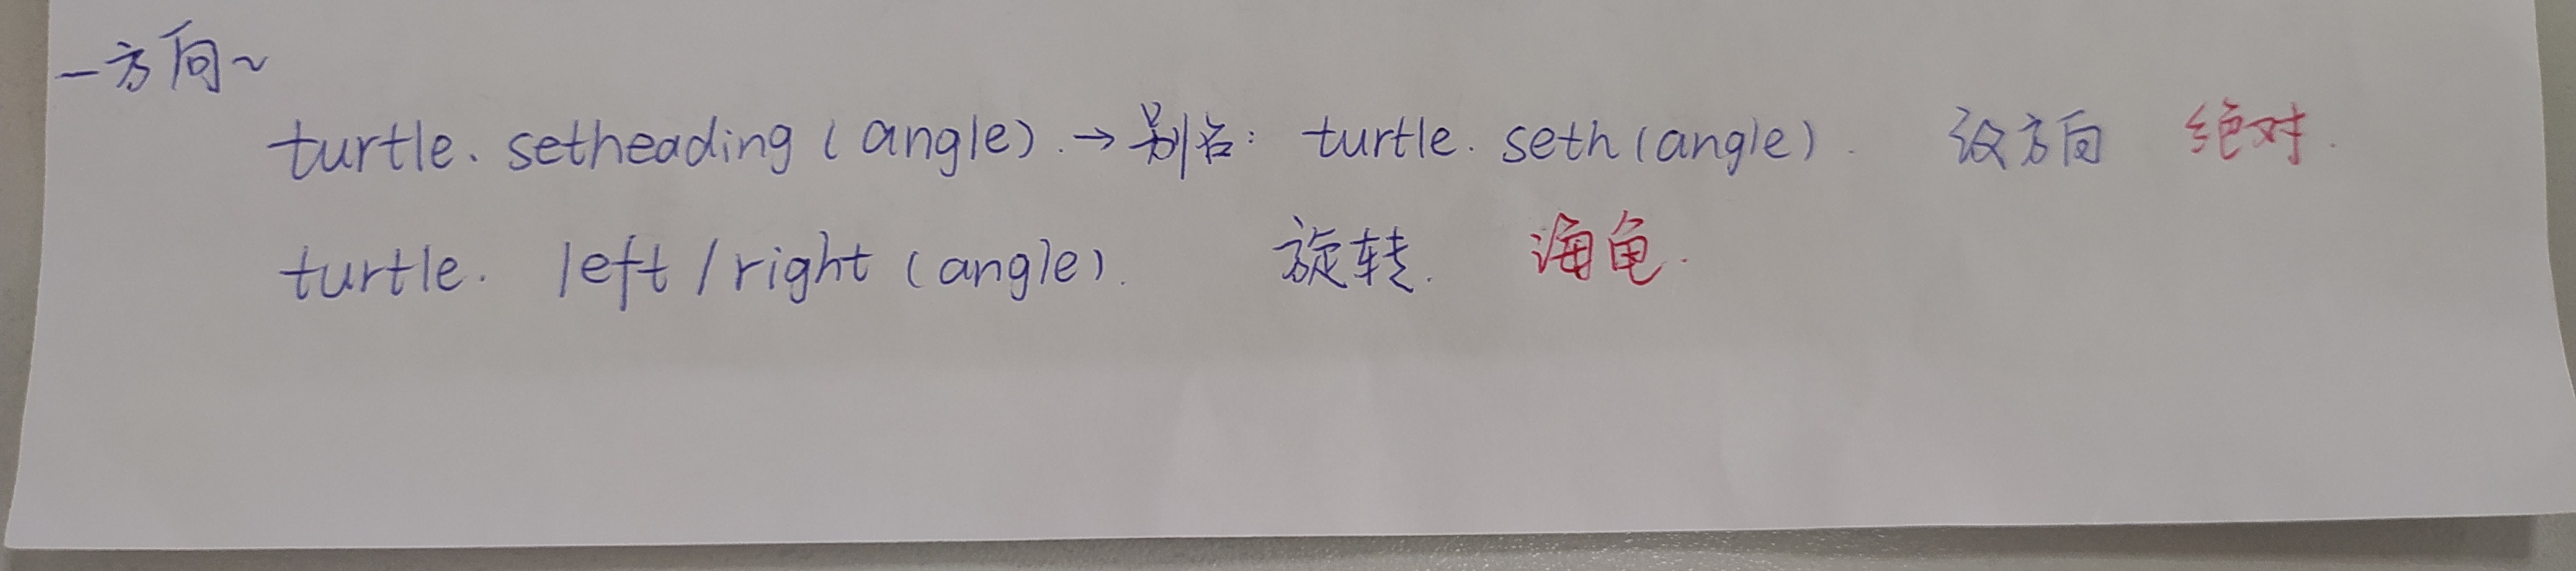 —方向~
turtle. setheading (angle). → 别名: turtle. seth (angle). 设方向 绝对.
turtle. left / right (angle). 旋转. 海龟.